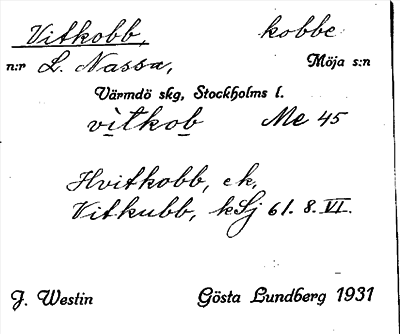 Vitkobb, kobbe
n:r L. Nassa, Möja s:n
Värmdö skg, Stockholms l.
vitkob Me 45
Hvitkobb, ek,
Vitkubb, kSj 61. 8. VI.
J. Westin Gösta Lundberg 1931